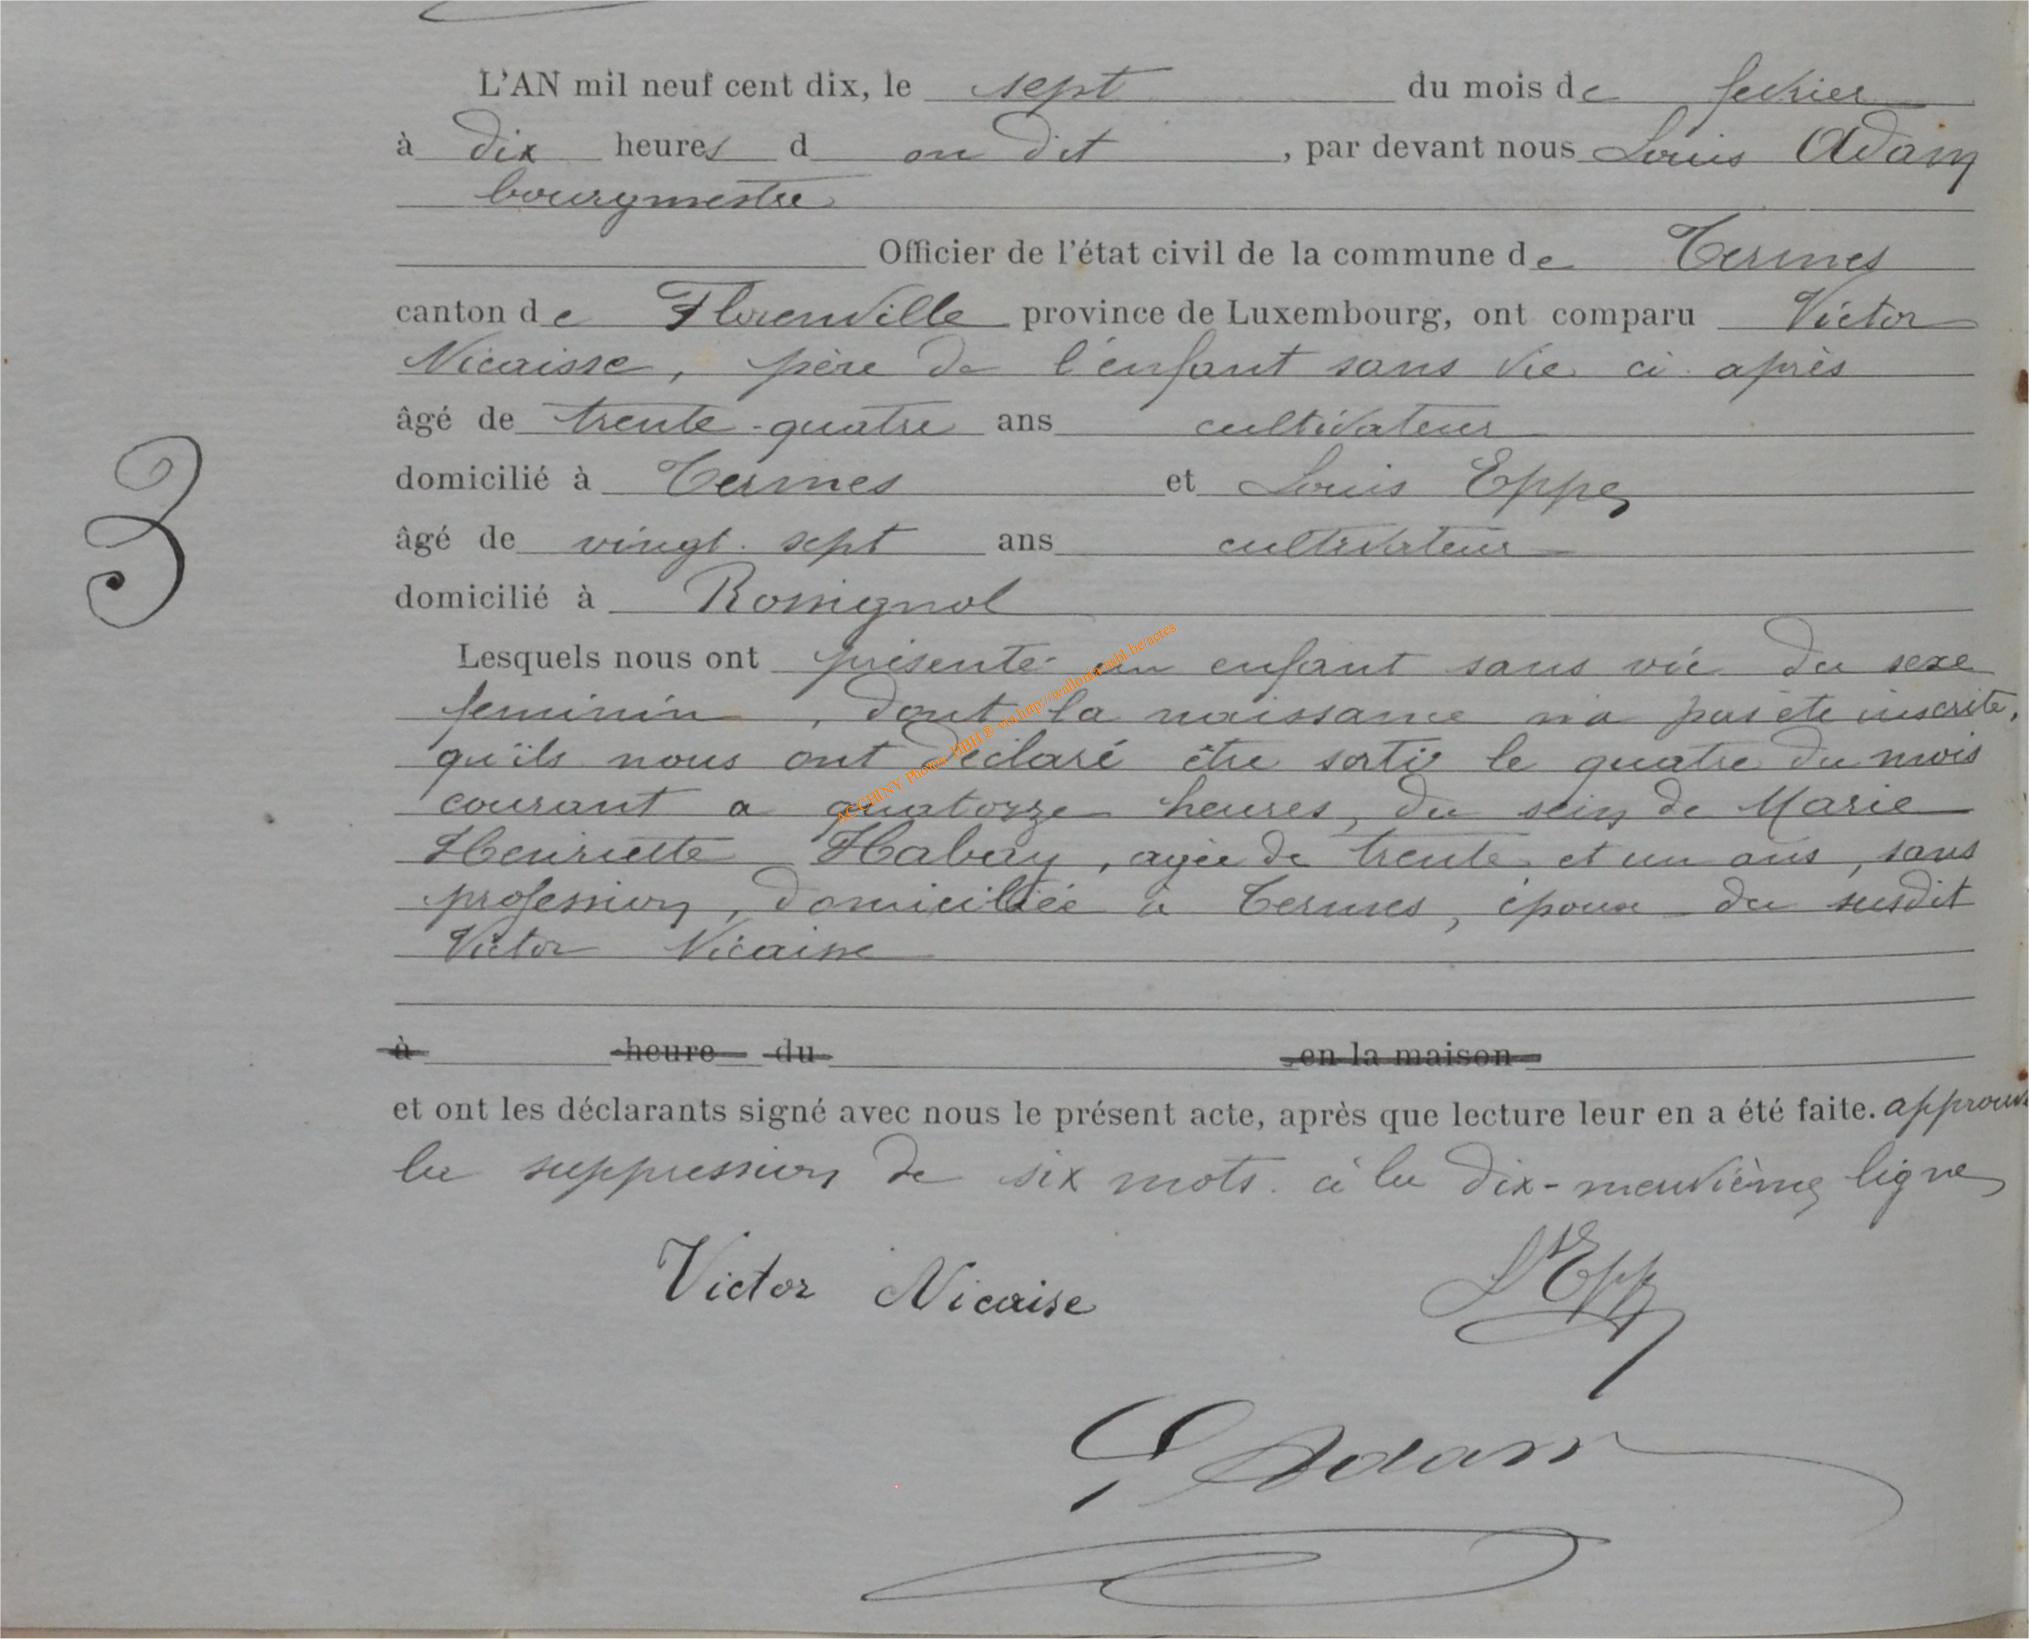 L'AN mil neuf cent dix, le sept du mois de fevrier
à dix heures d on dit , par devant nous Louis Adam
bourgmestre
Officier de l'état civil de la commune de Termes
canton de Florenville province de Luxembourg, ont comparu Victor
Nicaisse, père de l'enfant sans vie ci après
âgé de trente-quatre ans cultivateur
domicilié à Termes et Louis Eppe
3
âgé de vingt-sept ans cultivateur
domicilié à Rossignol
Lesquels nous ont présenté un enfant sans vie du sexe
feminin, dont la naissance n'a pas été inscrite,
qu'ils nous ont déclaré être sorti le quatre du mois
courant a quatorze heures, du sein de Marie
Henriette Habay, agée de trente et un ans, sans
profession, domiciliée à Termes, épouse du susdit
Victor Nicaisse
à heure du en la maison
et ont les déclarants signé avec nous le présent acte, après que lecture leur en a été faite. approuvé
la suppression de six mots à la dix-neuvième ligne
Victor Nicaise Ls Epp
L Adam